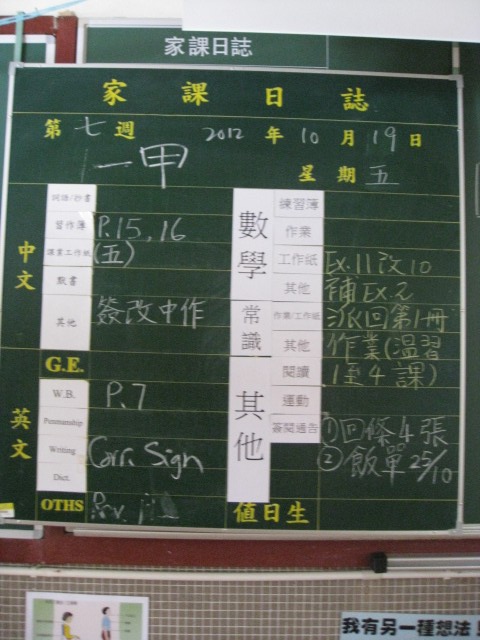 家課日誌
家課日誌
第七週 2012年10月19日
一甲 星期五
中文
詞語/抄書
習作簿 P.15, 16
課業工作紙 (五)
默書
其他 簽改中作
G.E.
英文
W.B. P.7
Penmanship
Writing Corr. Sign
Dict.
OTHS Rev.
數學
練習簿
作業
工作紙 Ex.11改10
其他 補Ex.2
常識
作業/工作紙 派回第1冊
其他 作業(溫習
其他
閱讀 1至4課)
運動
簽閱通告 ①回條4張
②飯單25/10
值日生
我有另一種想法